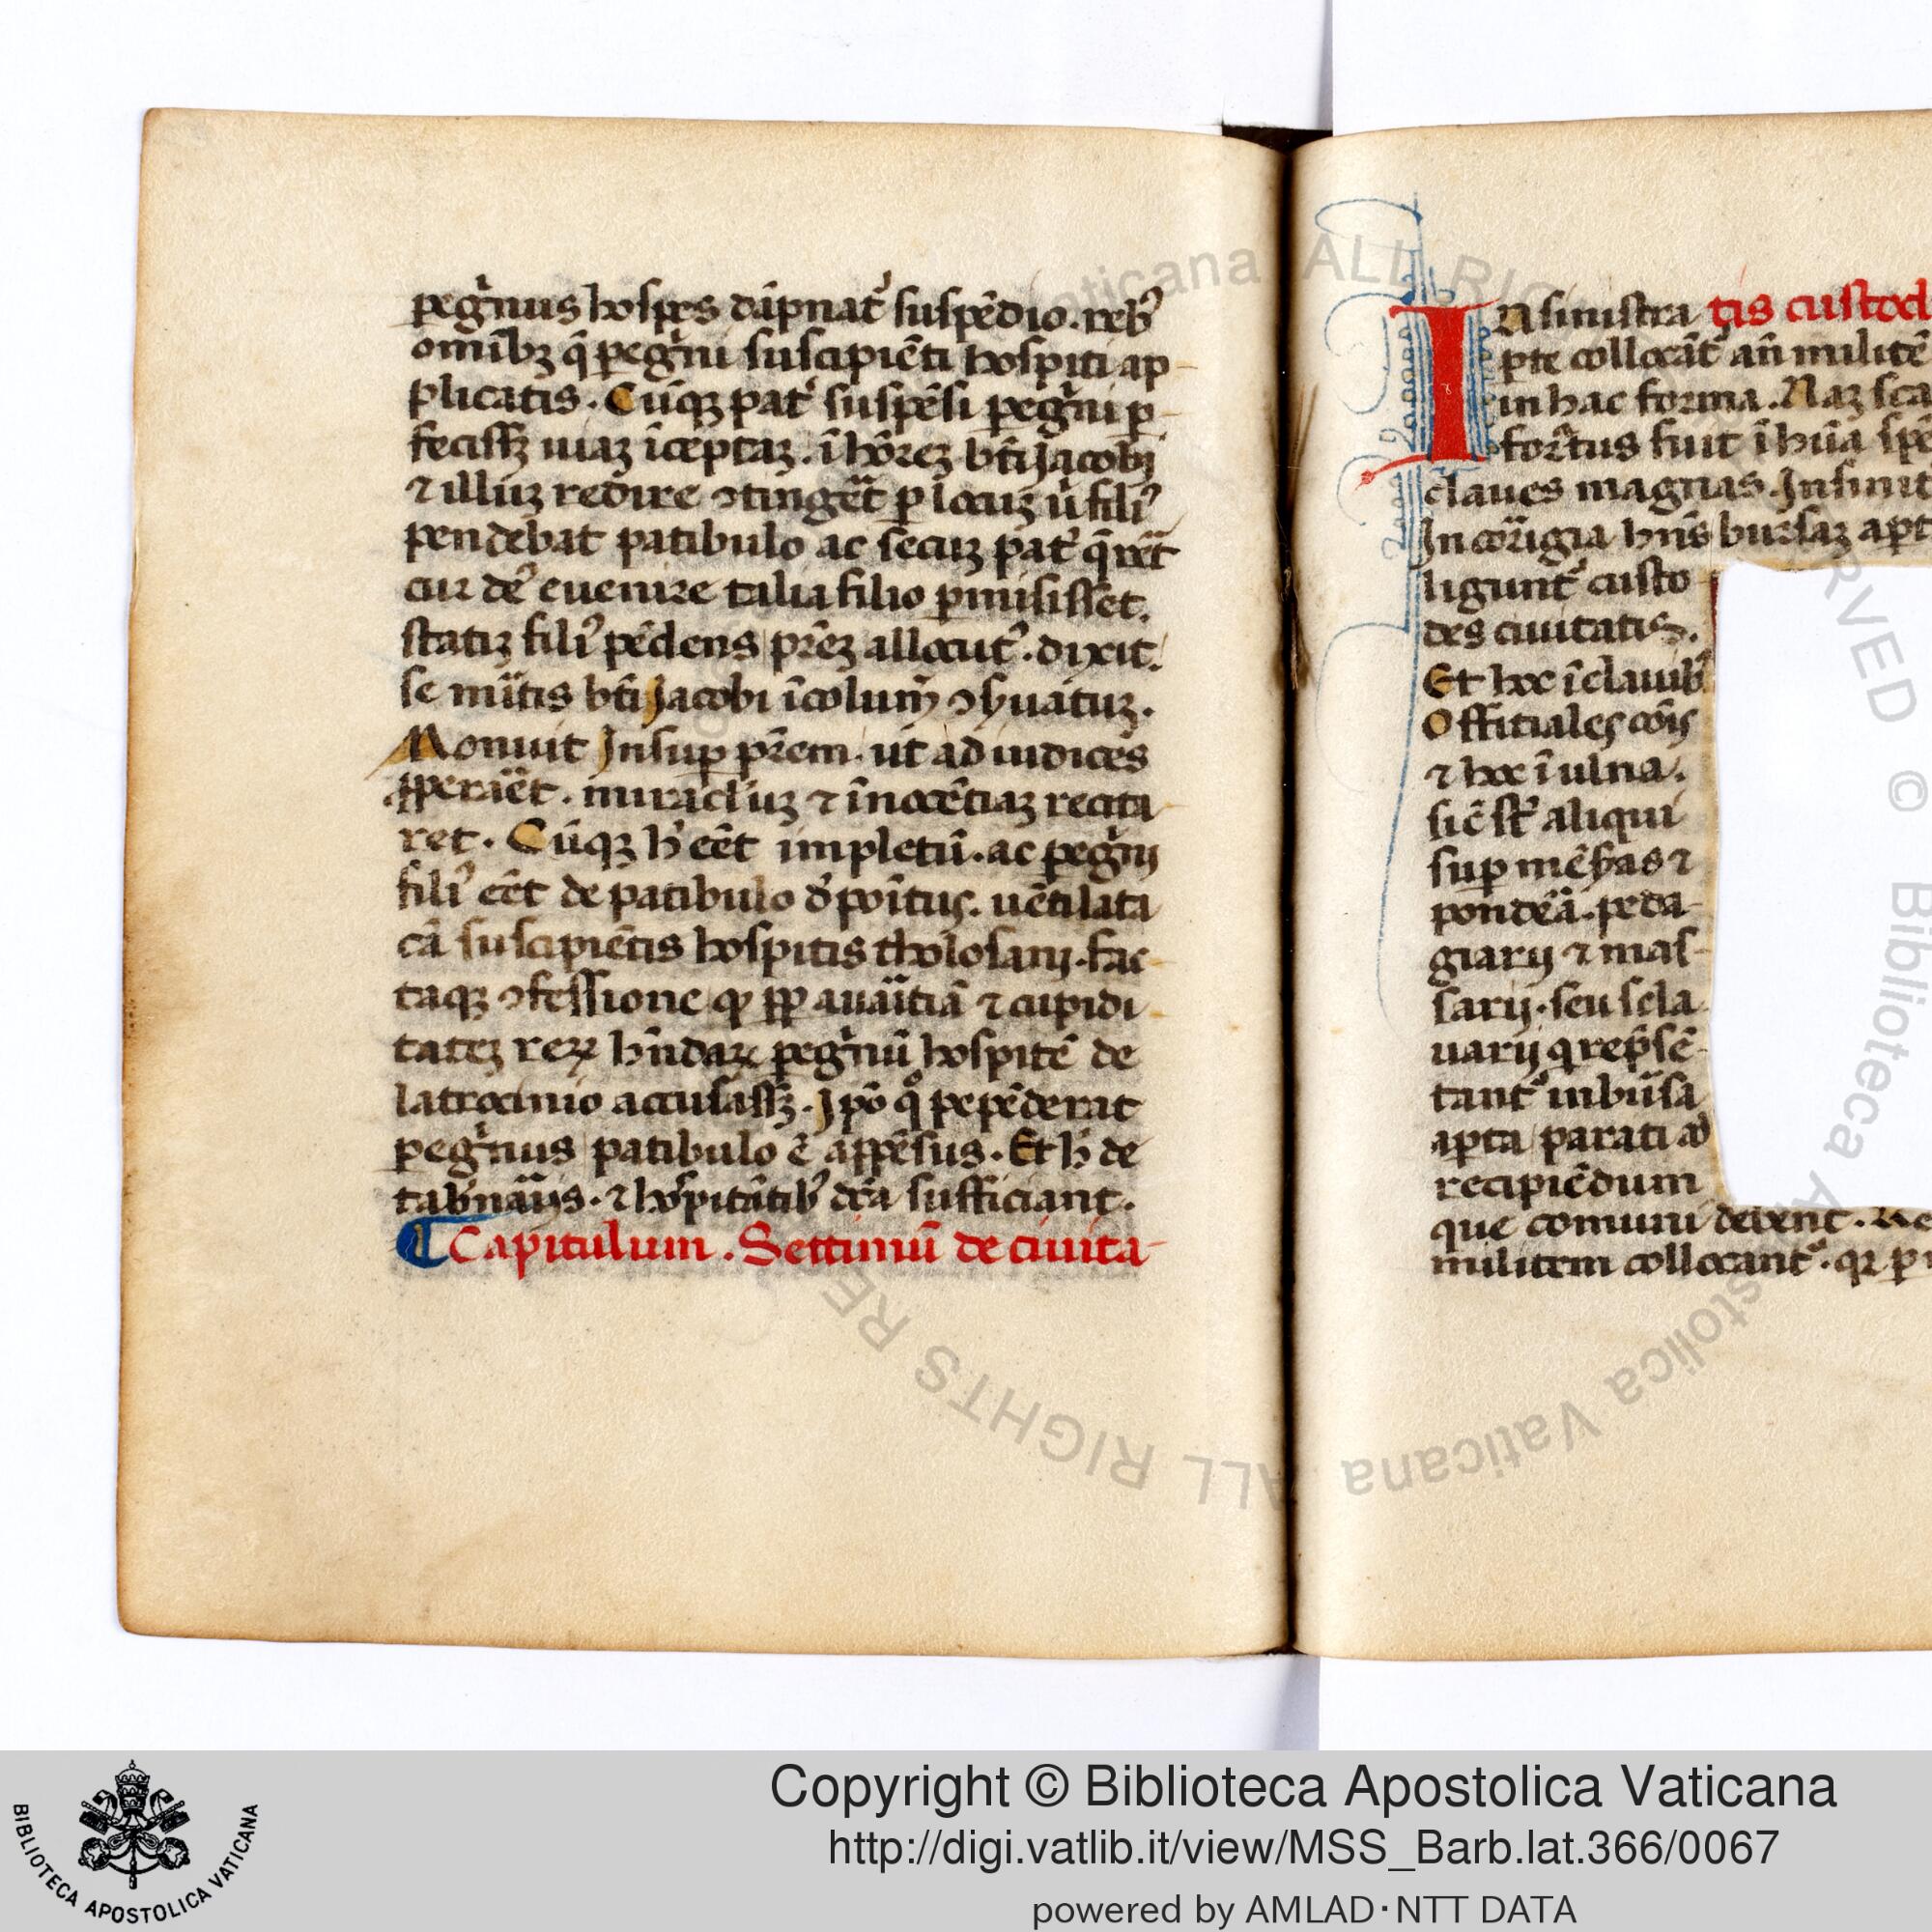 peg̃nus hospes dãpnat᷑ suspẽdio. reb᷒
omĩbꝫ q̃ peg̃ni suscipiẽti hospiti ap-
plicatis. Cũqꝫ pat᷑ suspẽsi peg̃ni ꝑ-
fecissꝫ uiaꝫ ĩceptaꝫ. ĩ hõreꝫ bt̃i Jacobi
⁊ illuꝫ redire ꝯtinget̃ ꝑ locuꝫ u̇ fili᷒
pendebat patibulo ac secuꝫ pat᷑ q̃ret̃
cur de᷒ euenire talia filio ꝑmisisset.
statiꝫ fili᷒ pẽdens pr̃eꝫ allocut᷒. dixit.
se mĩtis bt̃i Jacobi ĩcolum̃ ꝯẜuatuꝫ.
Monuit Insuꝑ pr̃em. ut ad iudices
ꝓperaẽt. miracl'uꝫ ⁊ ĩnocẽtiaꝫ recita-
ret. Cũqꝫ h' eẽt impletũ. ac peg̃nj
fili᷒ eẽt de patibulo d'poĩtus. uẽtilata
cã suscipiẽtis hospitis tholosanj. fac-
taqꝫ ꝯfessione ꝙ ꝓp auaĩtiã ⁊ cupidi-
tateꝫ reꝝ hñdaꝝ peg̃nũ hospitẽ de
latrocinio accusassꝫ. Jpõ qͦ pepẽderat
peg̃nus patibulo ẽ appẽsus. Et h' de
tab'naĩjs. ⁊ hospitãtib᷒ dc̃a sufficiant.
Capitulum. Settimũ de ciuita-
In sinistra tis custod
ꝑte collocãt᷑ añ militẽ
in hac forma. Naꝫ sca
fort̃us fuit ĩ hũa spẽ
claues magnas. In sinit
In cor̃igia hñs bursaꝫ apt
ligunt᷑ custo
des ciuitatis.
Et hoc ĩ clauib᷒
Offitiales cõis
⁊ hoc ĩ ulna.
sic̃ st̃ aliqui
suꝑ mẽẜas ⁊
pondeã. peda-
giarij ⁊ mas-
sarij. seu scla
uarij q rep̃sẽ-
tant᷑ in bũsa
apta parati ad
recipiẽdum
que comuni debent. Re
militem collocant᷑. qꝛ ꝑ
Copyright © Biblioteca Apostolica Vaticana
http://digi.vatlib.it/view/MSS_Barb.lat.366/0067
powered by AMLAD·NTT DATA
BIBLIOTECA APOSTOLICA VATICANA